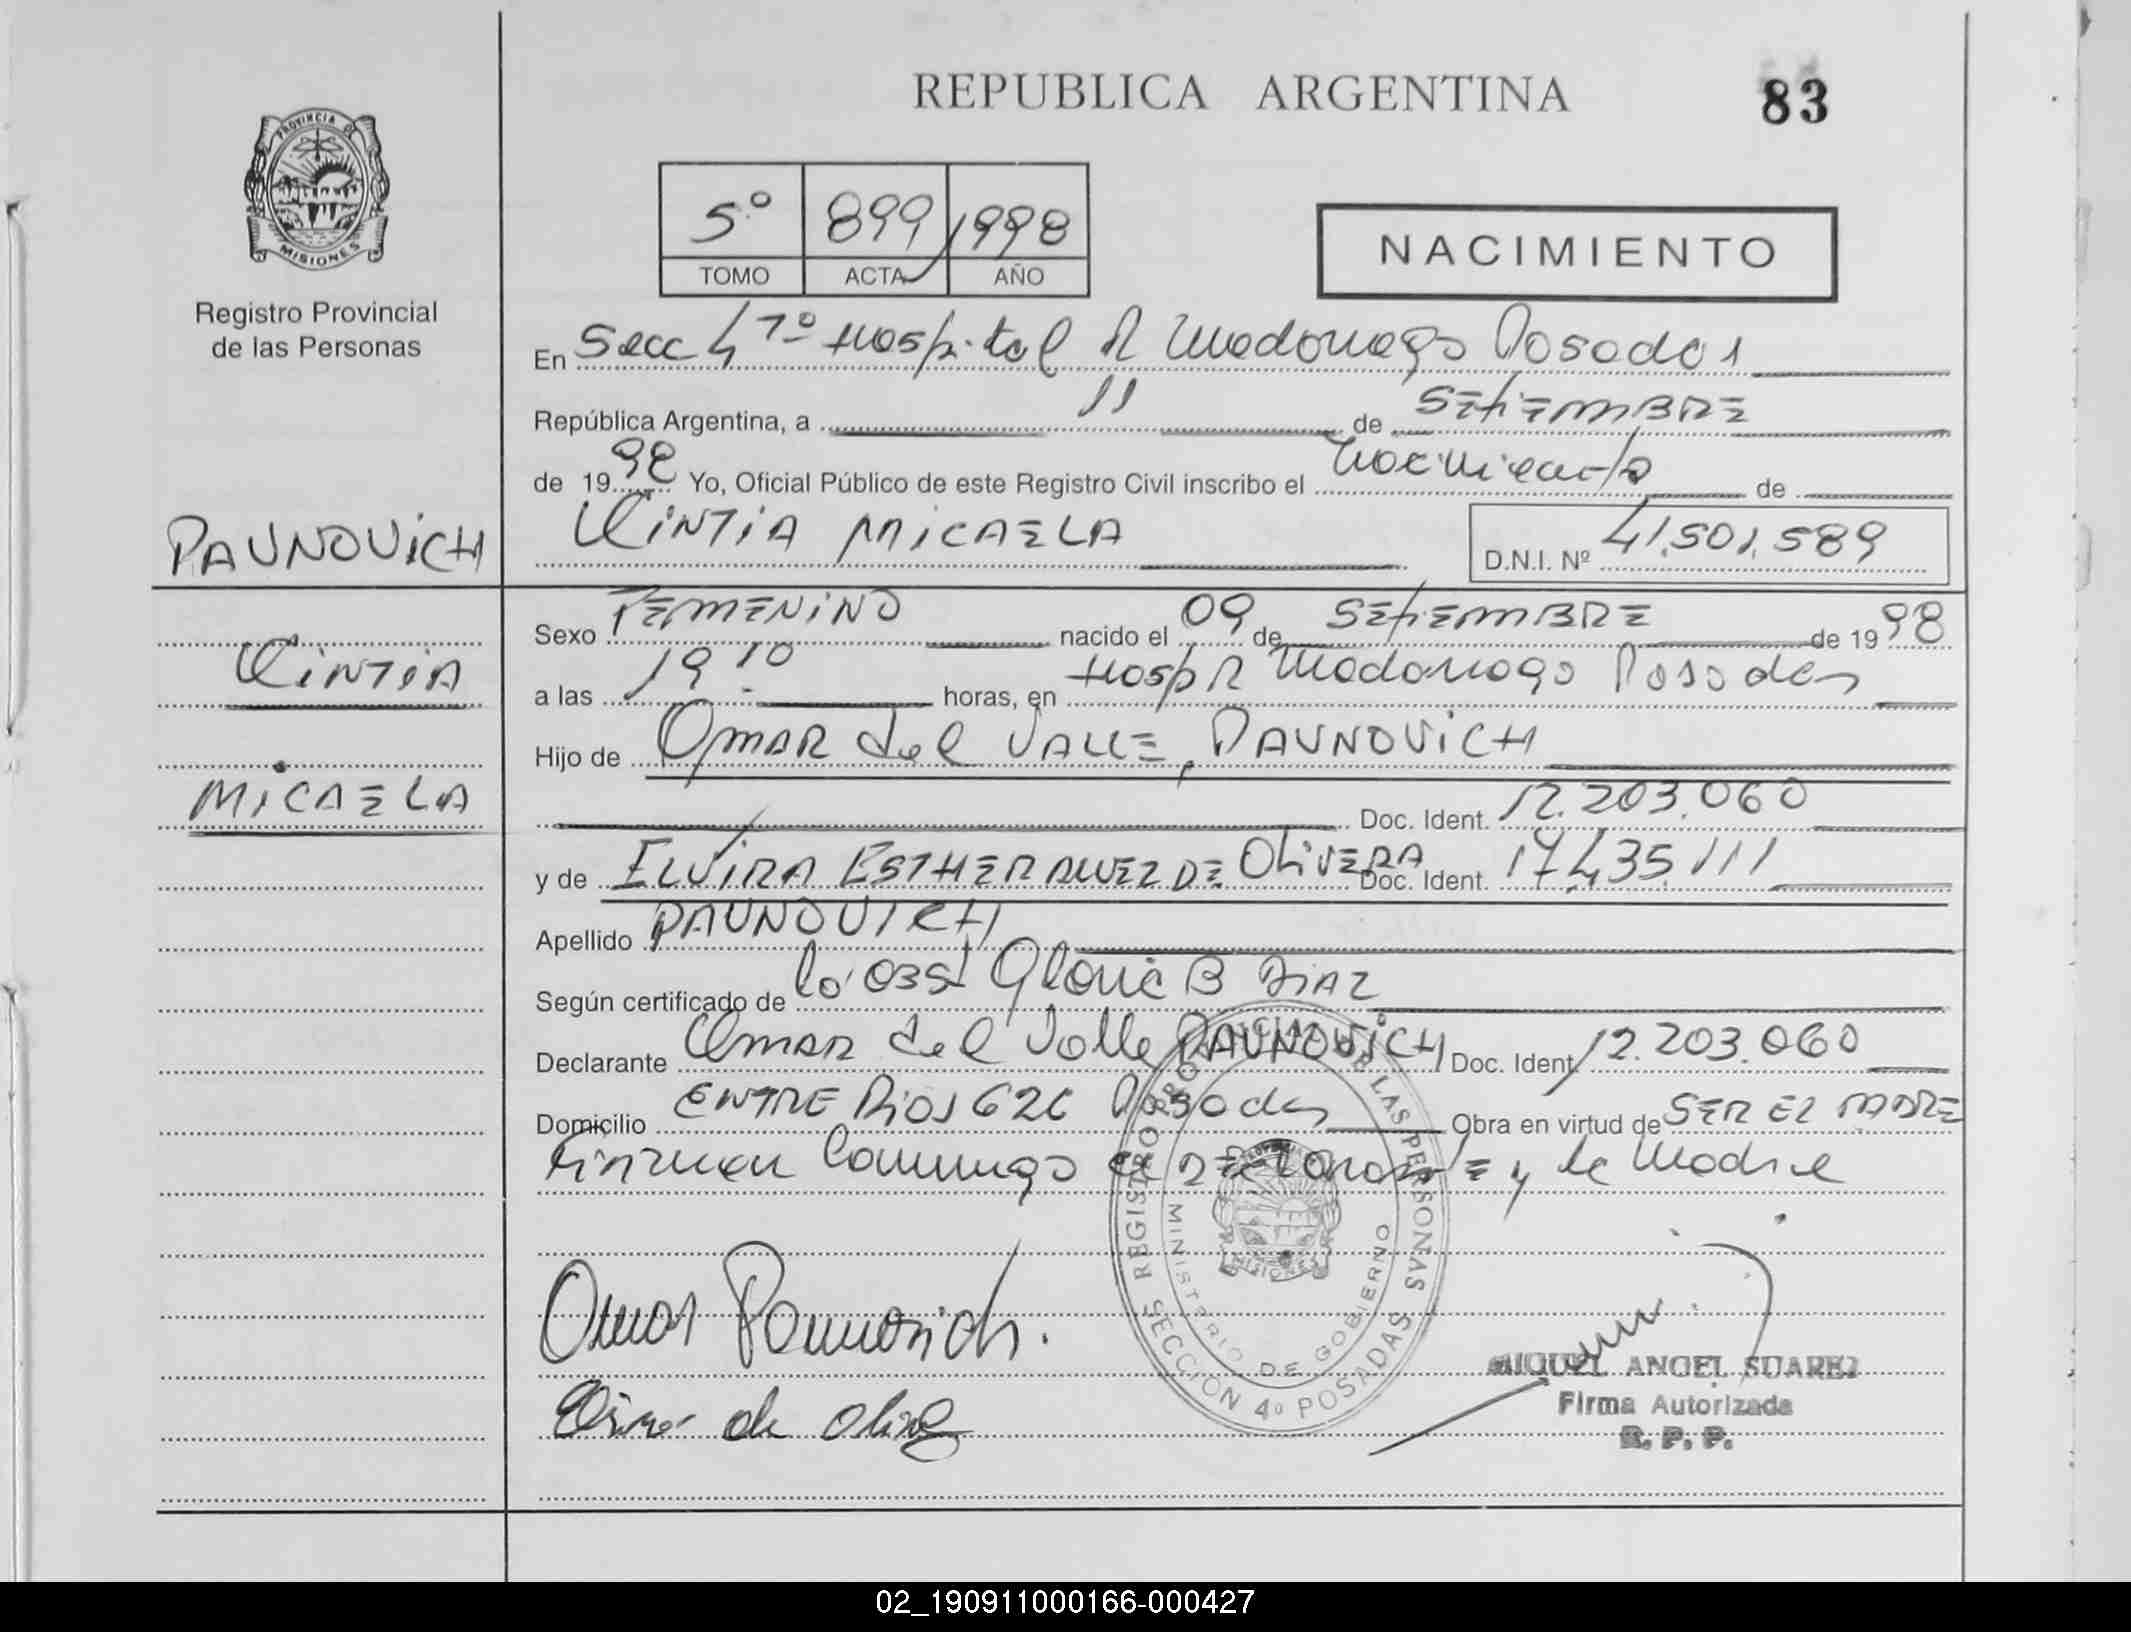 REPUBLICA ARGENTINA
83
PROVINCIA DE
MISIONES
Registro Provincial
de las Personas
5º 899 1998
TOMO ACTA AÑO
NACIMIENTO
En Secc 4 Hospital R Madariaga Posadas
República Argentina, a 11 de SEtiEMBRE
de 1998 Yo, Oficial Público de este Registro Civil inscribo el nacimiento de
PAUNOVICH
CINTIA MICAELA
D.N.I. Nº 41.501.589
Sexo FEMENINO nacido el 09 de SEtiEMBRE de 1998
CINTIA
a las 19 10 horas, en Hosp R Madariaga Posadas
Hijo de OMAR del VALLE PAUNOVICH
MICAELA
Doc. Ident. 12.203.060
y de ELVIRA ESTHER ALVEZ DE OLIVERA Doc. Ident. 17.435.111
Apellido PAUNOVICH
Según certificado de la Obst Gloria B DIAZ
Declarante OMAR del Valle PAUNOVICH Doc. Ident. 12.203.060
Domicilio ENTRE RIOS 626 Posadas Obra en virtud de SER EL PADRE
Firman conmigo el DEcLaraNtE y la Madre
REGISTRO PROVINCIAL DE LAS PERSONAS
MINISTERIO DE GOBIERNO
MISIONES
SECCIÓN 4º POSADAS
Omar Paunovich.
MIGUEL ANGEL SUAREZ
Firma Autorizada
R. P. P.
02_190911000166-000427